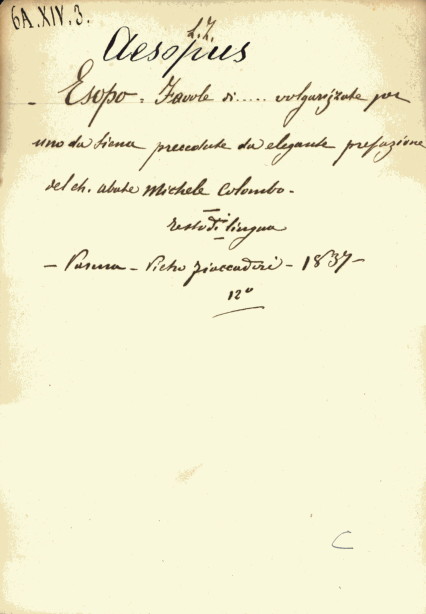 6A.XIV.3.
L.I.
Aesopus
- Esopo - Favole di..... volgarizzate per
uno da Siena precedute da elegante prefazione
del ch. abate Michele Colombo -
Testo di lingua
- Parma - Pietro Fiaccadori - 1837 -
12°
C